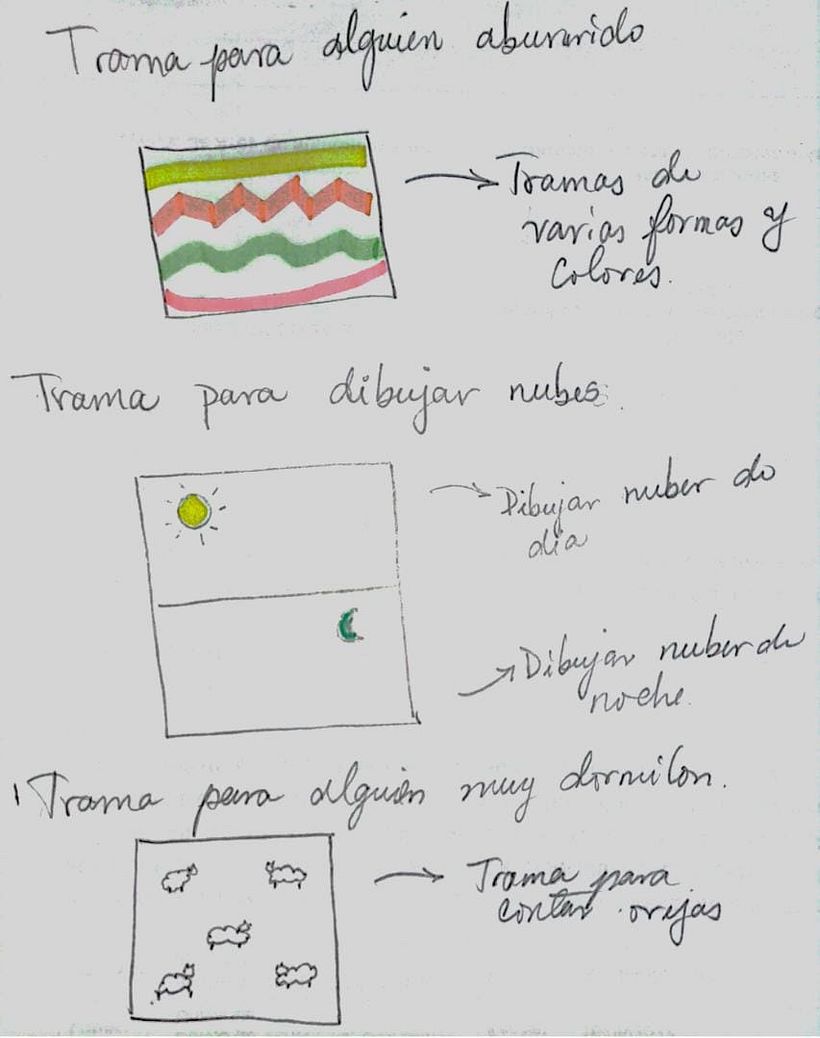 Trama para alguien abururrido
Tramas de
varias formas y
colores.
Trama para dibujar nubes.
Dibujar nuber de
día
Dibujar nuber de
noche.
Trama para alguien muy dormilon.
Trama para
contar orejas